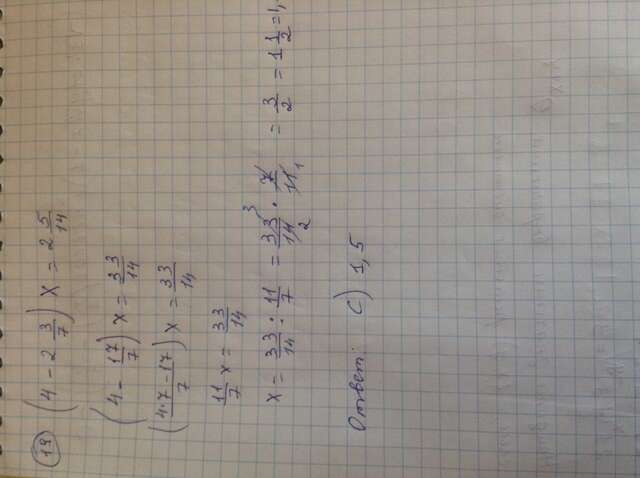 19 (4 - 2 3/7) x = 2 5/14
(4 - 17/7) x = 33/14
(4·7-17/7) x = 33/14
11/7 x = 33/14
x = 33/14 : 11/7 = 33/14 · 7/11 = 3/2 = 1 1/2 = 1,
Ответ: C) 1,5